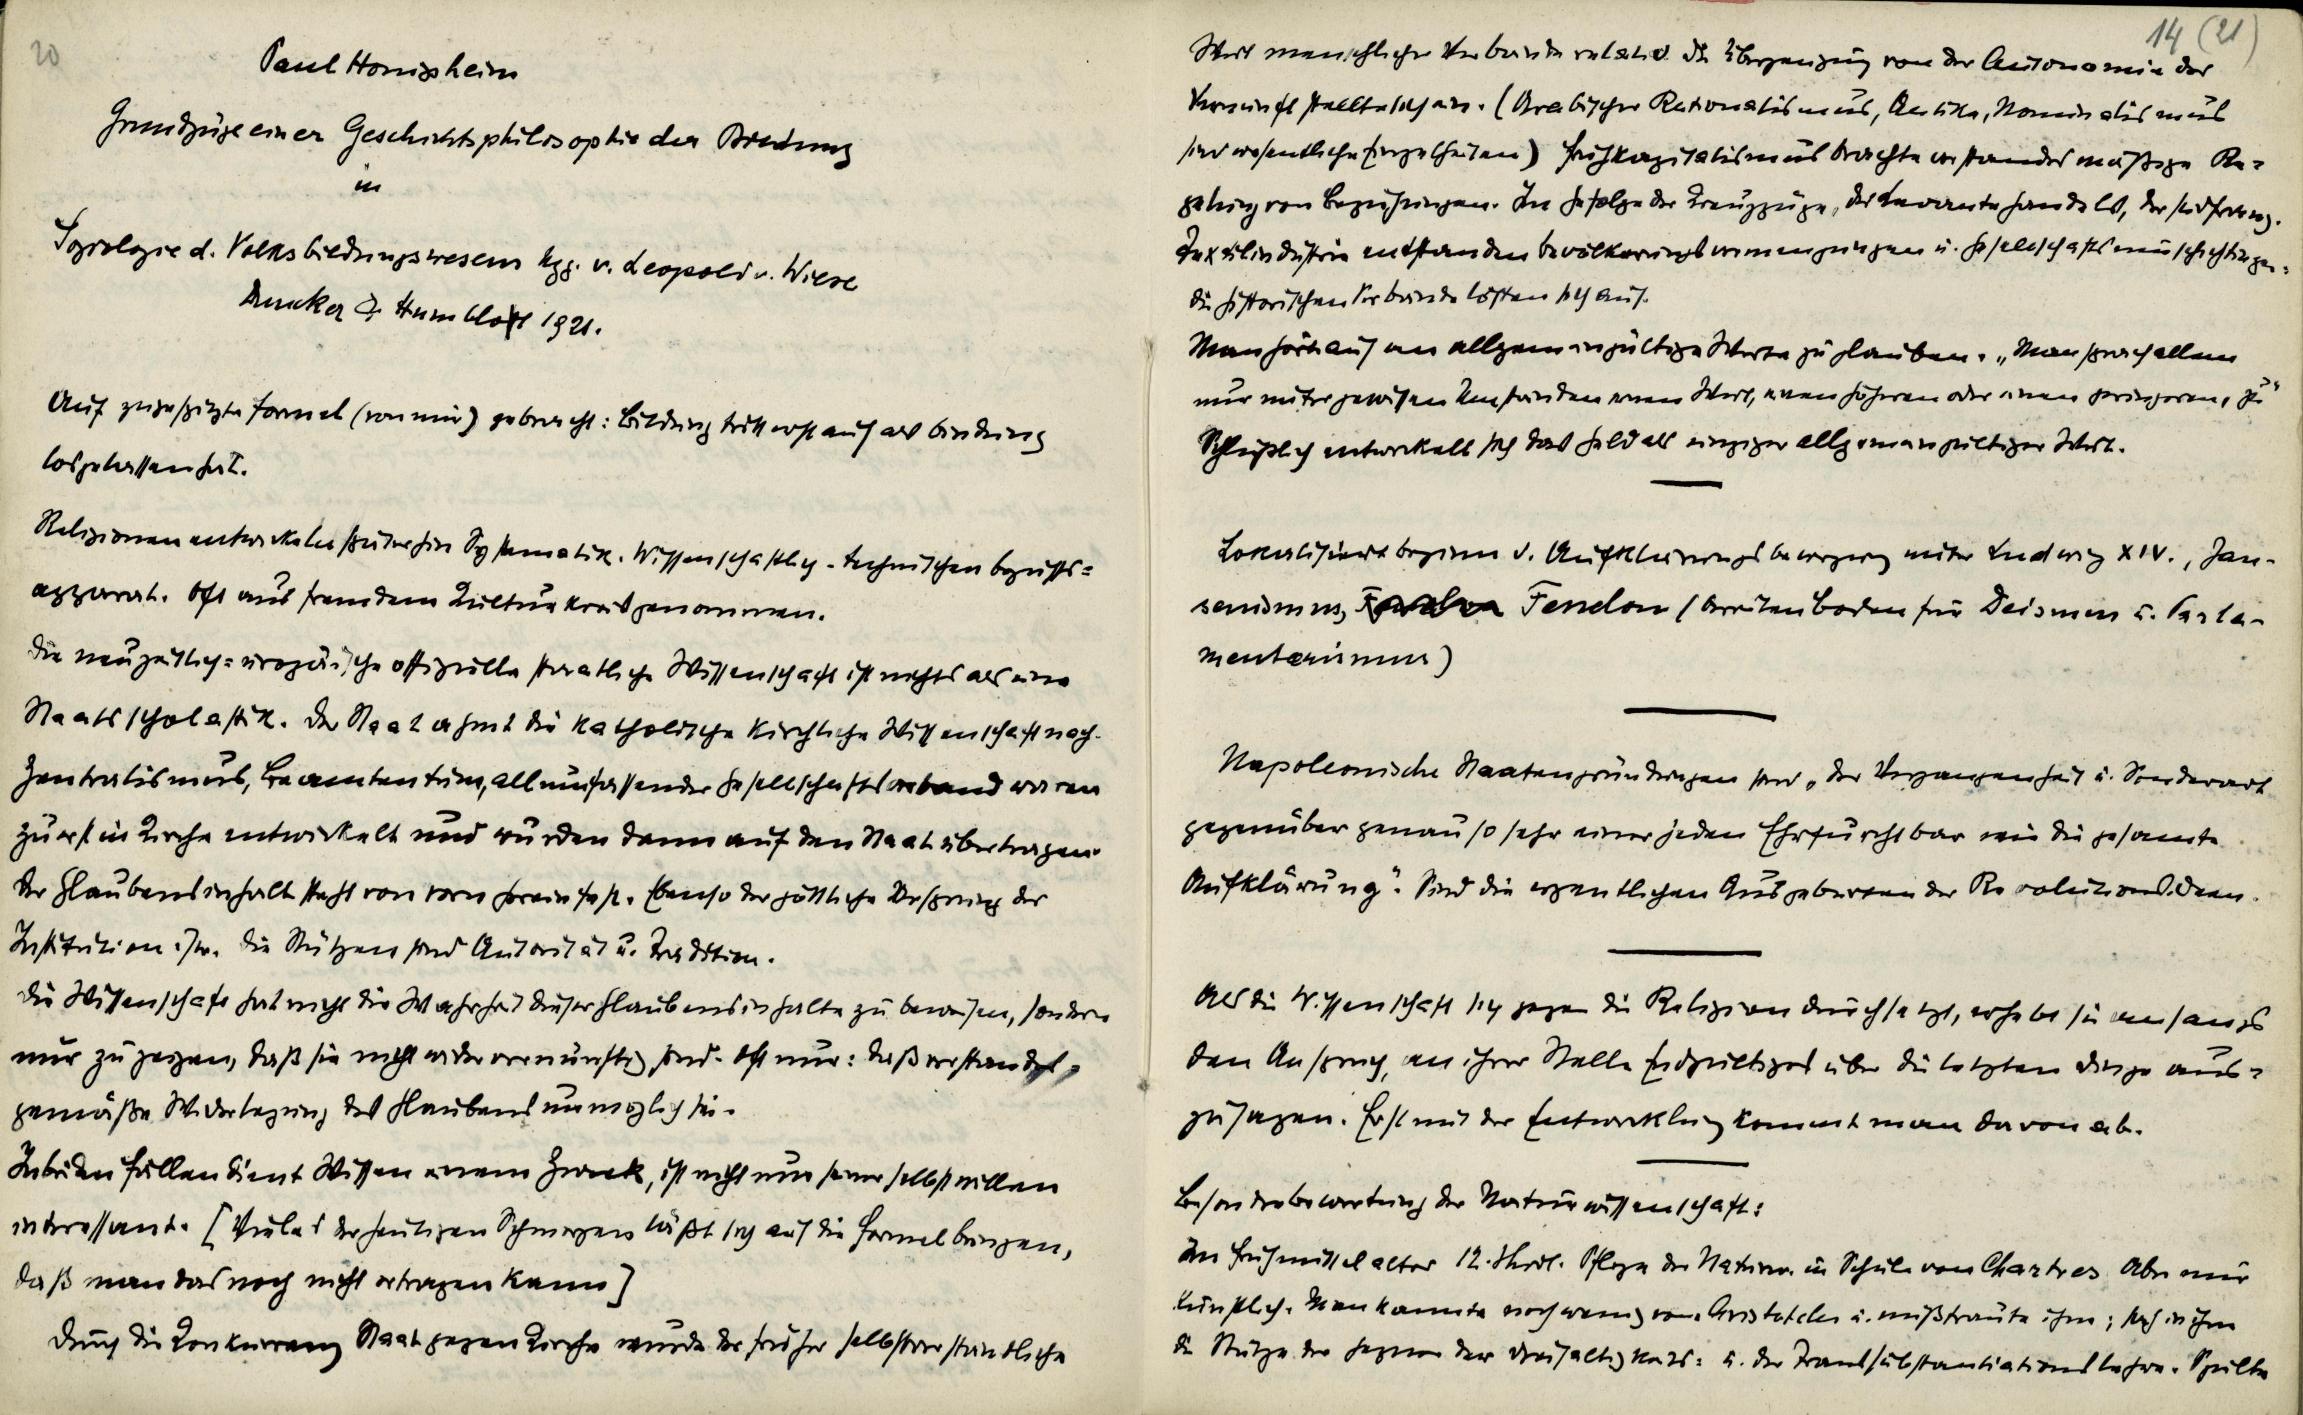 20
Paul Honigsheim
Grundzüge einer Geschichtsphilosophie der Bildung
in
Soziologie d. Volksbildungswesens hgg. v. Leopold v. Wiese
Duncker & Humblot 1921.
Auf zugespitzte Formel (von mir) gebracht: Bildung tritt erst auf als Bindung
losgelassen hat.
Religionen entwickeln späterhin Systematik. Wissenschaftlich-technischen Begriffs=
apparat. Oft aus fremdem Kulturkreis genommen.
Die neuzeitlich=europäische offizielle staatliche Wissenschaft ist nichts als eine
Staatsscholastik. Der Staat ahmt die katholische kirchliche Wissenschaft nach.
Zentralismus, Beamtentum, allumfassender Gesellschaftsverband waren
zuerst in Kirche entwickelt und wurden dann auf den Staat übertragen.
Der Glaubensinhalt steht von vorn herein fest. Ebenso der göttliche Ursprung der
Institution usw. Die Stützen sind Autorität u. Tradition.
Die Wissenschaft hat nicht die Wahrheit dieser Glaubensinhalte zu beweisen, sondern
nur zu zeigen, daß sie nicht widervernünftig sind. Oft nur: daß verstandes=
gemäße Widerlegung des Glaubens unmöglich sei.
In beiden Fällen dient Wissen einem Zweck, ist nicht um seiner selbst willen
interessant. [Vieles der heutigen Schmerzen läßt sich auf die Formel bringen,
daß man das noch nicht ertragen kann]
Durch die Konkurrenz Staat gegen Kirche wurde der früher selbstverständliche
14 (21)
Wert menschlicher Verbände relativ. Die Überzeugung von der Autonomie der
Vernunft stellte sich ein. (Arabischer Rationalismus, Antike, Nominalismus
sind wesentliche Einzelheiten) Frühkapitalismus brachte verstandesmäßige Re=
gelung von Beziehungen. Im Gefolge der Kreuzzüge, des Levantehandels, der südfranz.
Textilindustrie entstanden Bevölkerungsvermengungen u. Gesellschaftsumschichtungen:
die historischen Verbände lösten sich auf.
Man hört auf an allgemeingültige Werte zu glauben. „Man sprach allem
nur unter gewissen Umständen einen Wert, einen höheren oder einen geringeren, zu"
Schließlich entwickelt sich das Geld als einziger allgemeingültiger Wert.
Lokalisiert Beginn d. Aufklärungsbewegung unter Ludwig XIV., Jan-
senismus, Fenelon (bereiten Boden für Deismus u. Parla-
mentarismus)
Napoleonische Staatengründungen sind „der Vergangenheit u. Sonderart
gegenüber genau so sehr einer jeden Ehrfurcht bar wie die gesamte
Aufklärung". Sind die eigentlichen Ausgeburten der Revolutionsideen.
Als die Wissenschaft sich gegen die Religion durchsetzt, erhebt sie anfangs
den Anspruch, an ihrer Stelle Endgültiges über die letzten Dinge aus=
zusagen. Erst mit der Entwicklung kommt man davon ab.
Besonderbewertung der Naturwissenschaft:
Im Frühmittelalter 12. Jhrdt. Pflege der Naturw. in Schule von Chartres. Aber nur
künstlich. Man kannte noch wenig von Aristoteles u. mißtraute ihm; sah in ihm
die Stütze der Gegner der Dreifaltigkeits= u. der Transsubstantiationslehre. Spielte